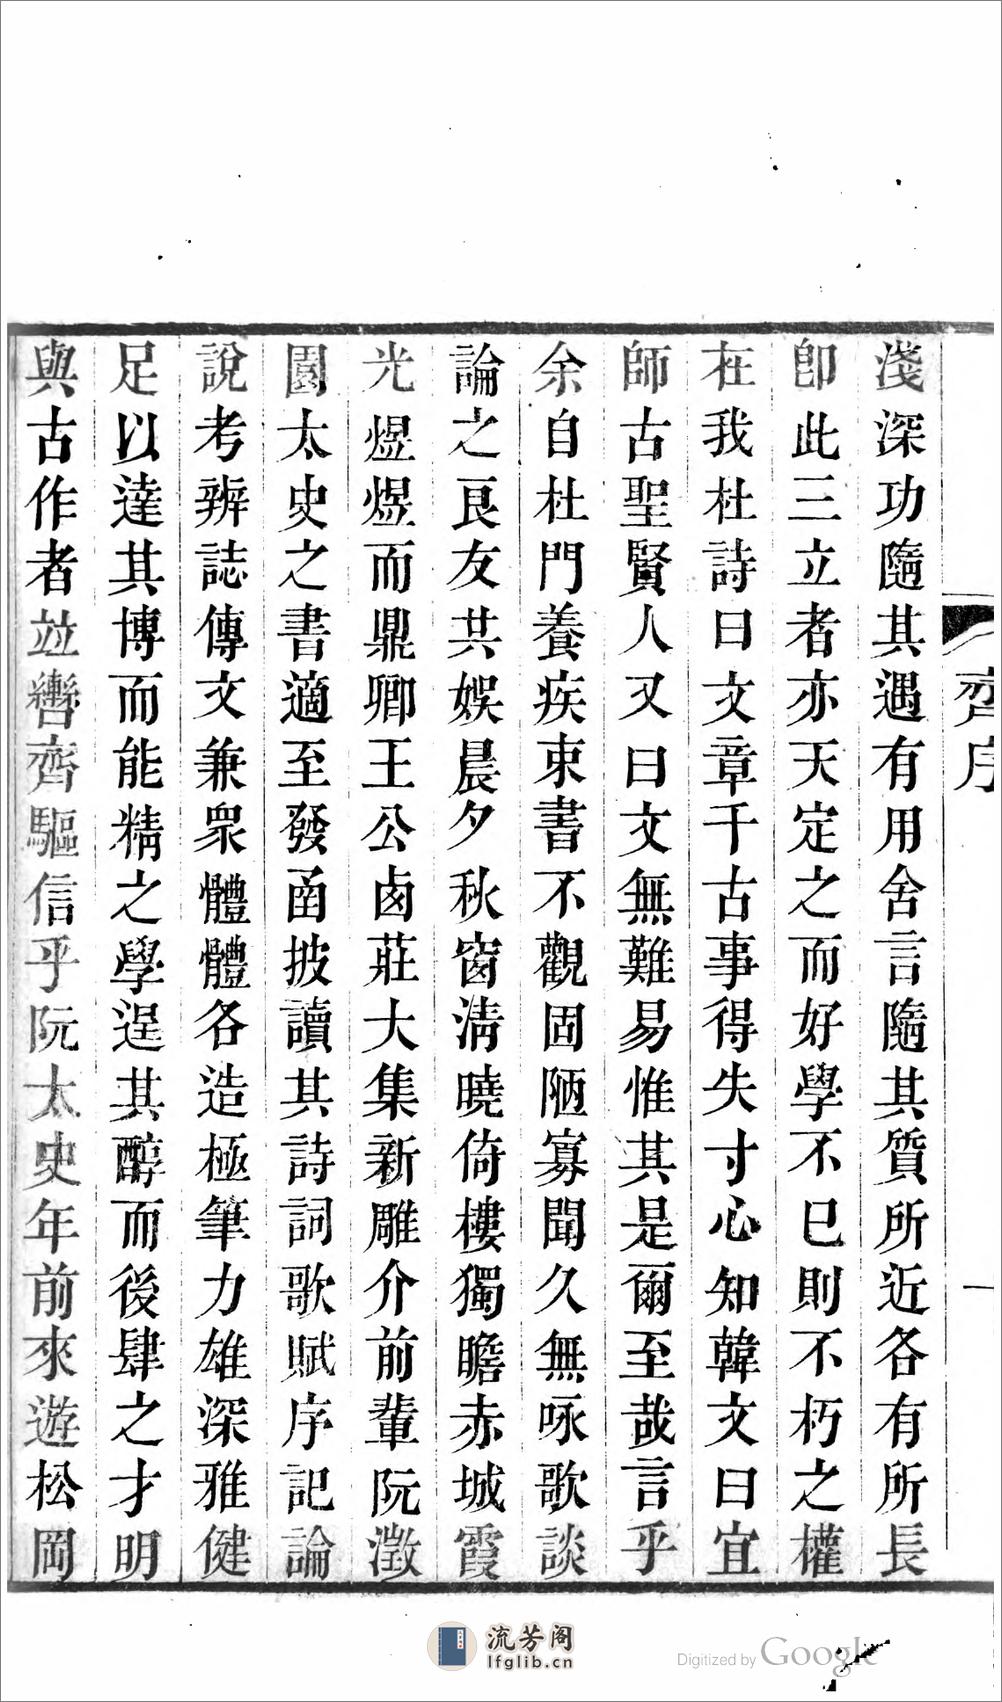 齊序
一
淺深功隨其遇有用舍言隨其質所近各有所長
卽此三立者亦天定之而好學不已則不朽之權
在我杜詩曰文章千古事得失寸心知韓文曰宜
師古聖賢人又曰文無難易惟其是爾至哉言乎
余自杜門養疾束書不觀固陋寡聞久無咏歌談
論之良友共娛晨夕秋窗淸曉倚樓獨瞻赤城霞
光煜煜而鼎卿王公卤莊大集新雕介前輩阮澂
園太史之書適至發函披讀其詩詞歌賦序記論
說考辨誌傳文兼衆體體各造極筆力雄深雅健
足以達其博而能精之學逞其醇而後肆之才明
與古作者並轡齊驅信乎阮太史年前來遊松岡
流芳阁
lfglib.cn
Digitized by Google